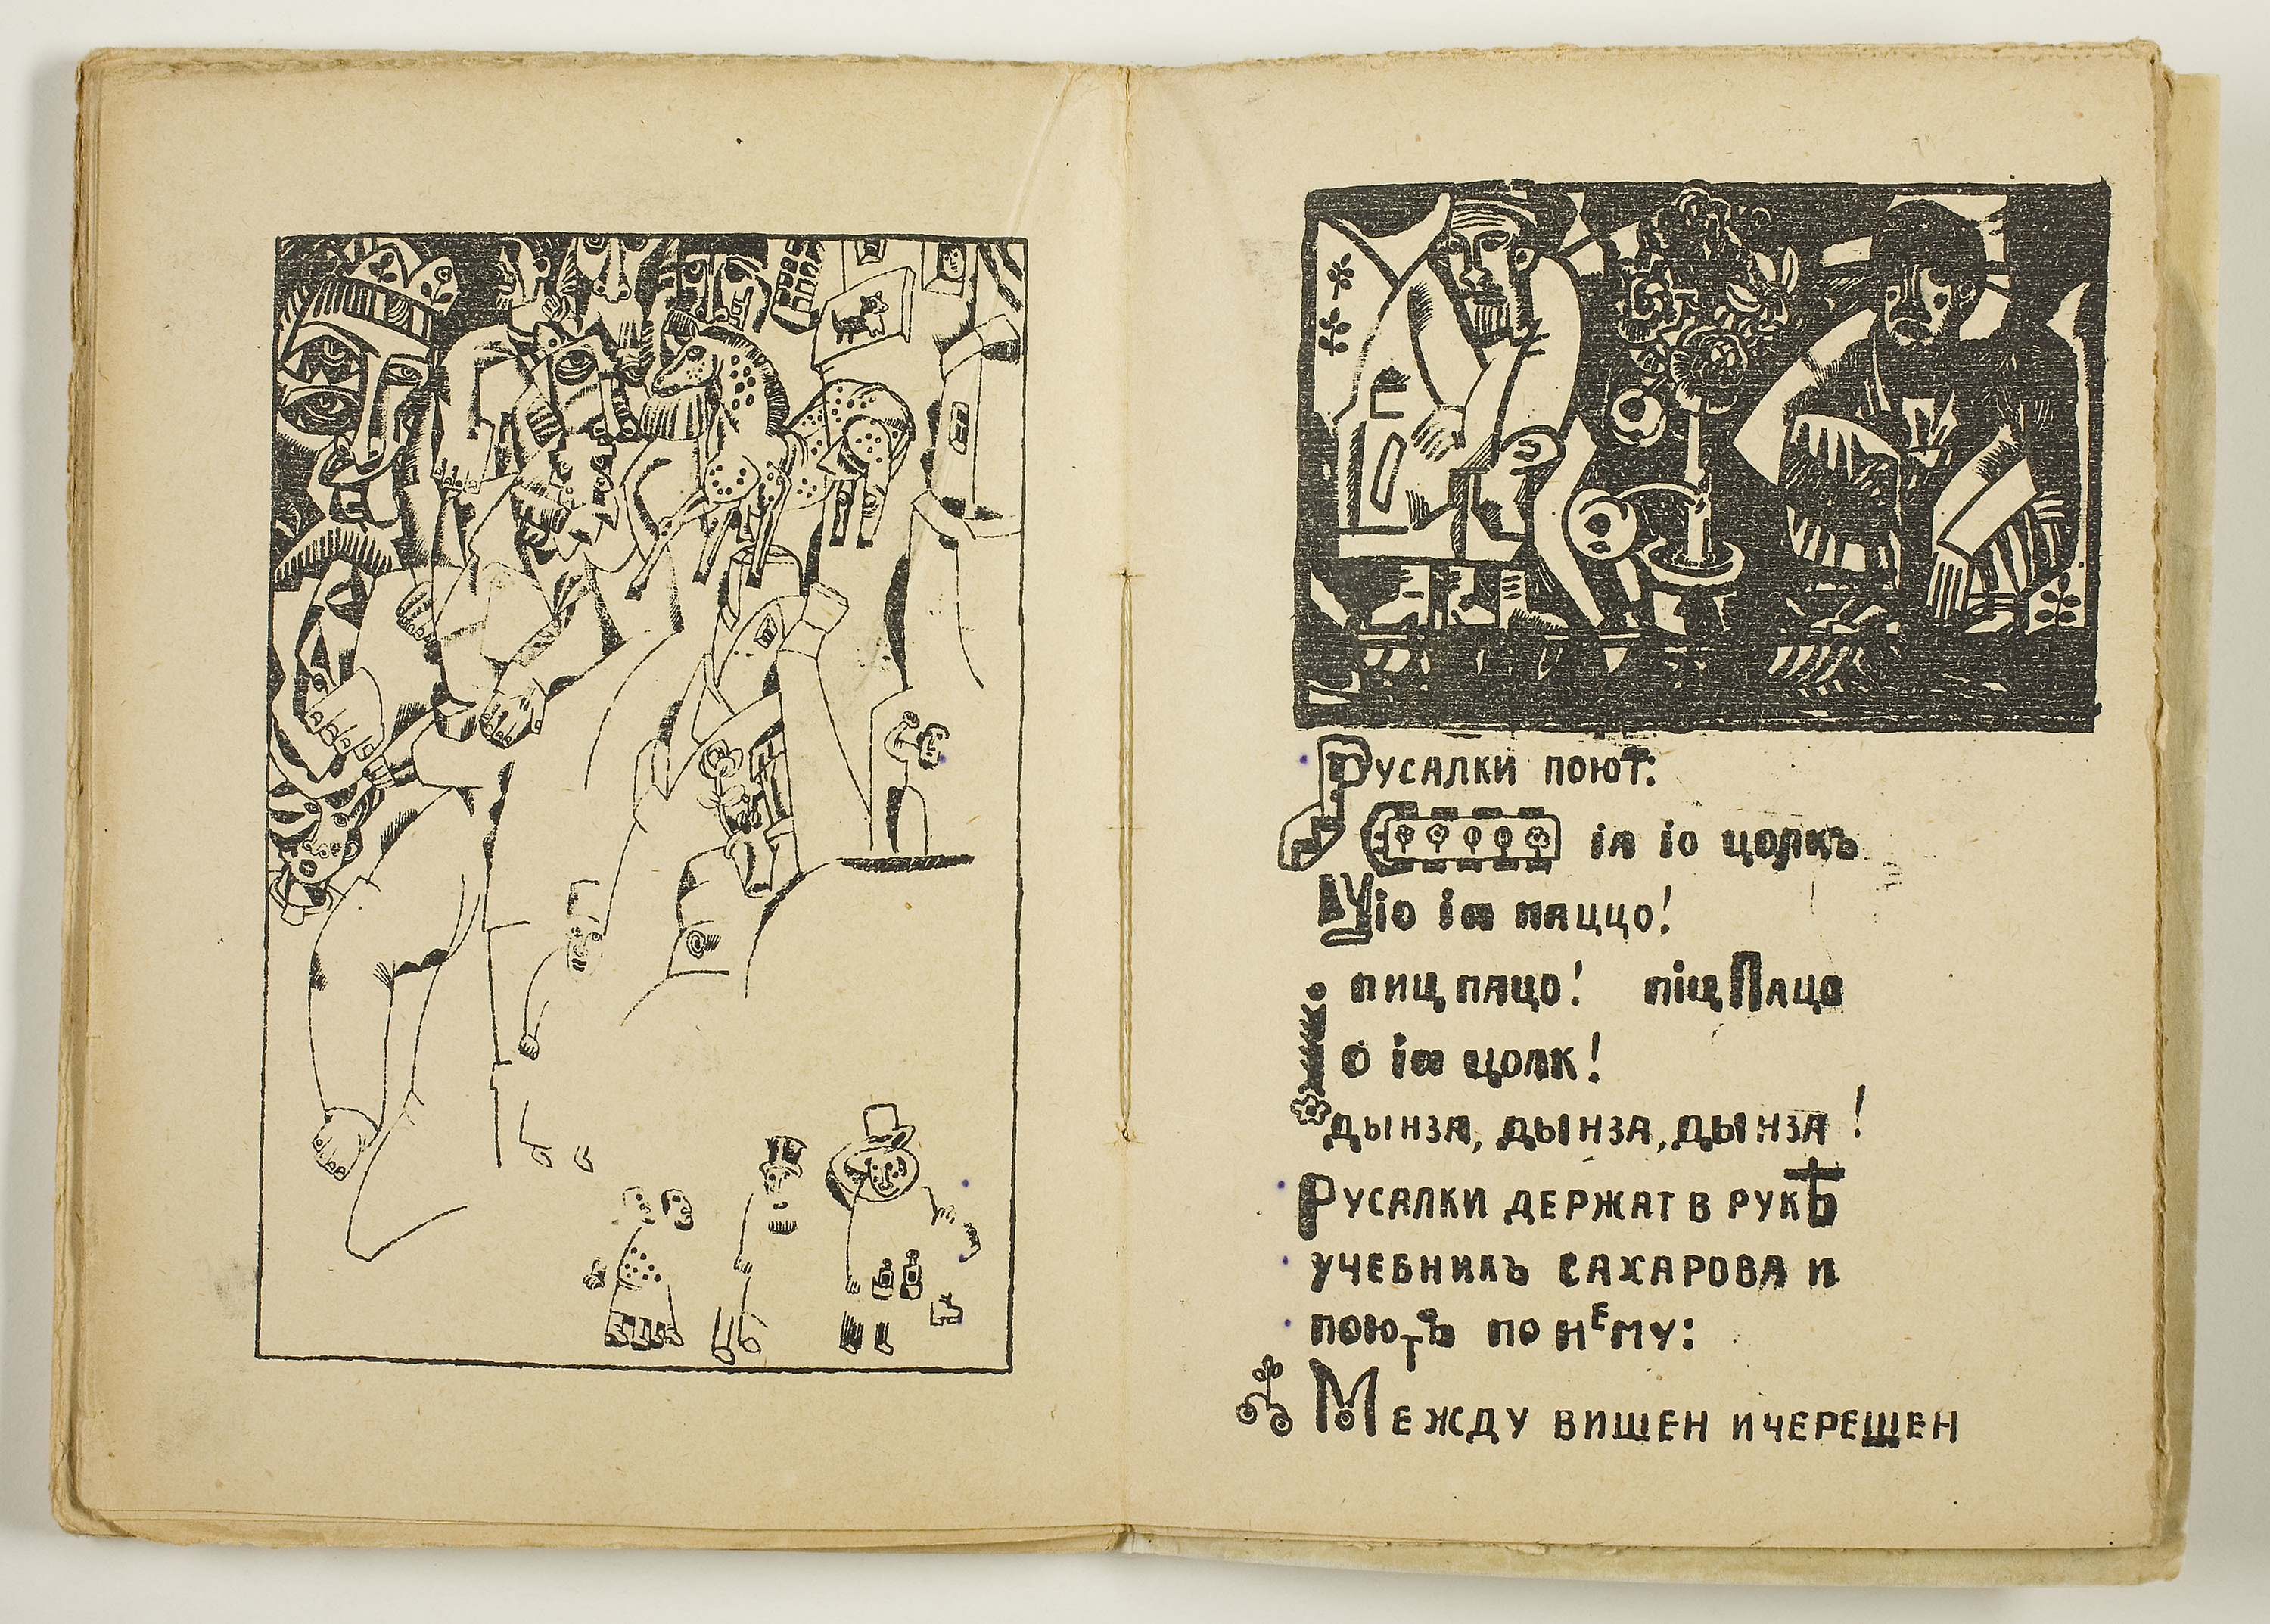 Русалки поют:
іа іо цолкъ
Цію іа паццо!
пиц пацо! піц Пацо
Іо іа цолк!
дынза, дынза, дынза!
Русалки держат в рукѣ
учебникъ Сахарова и
поютъ по нему:
Между вишен и черешен